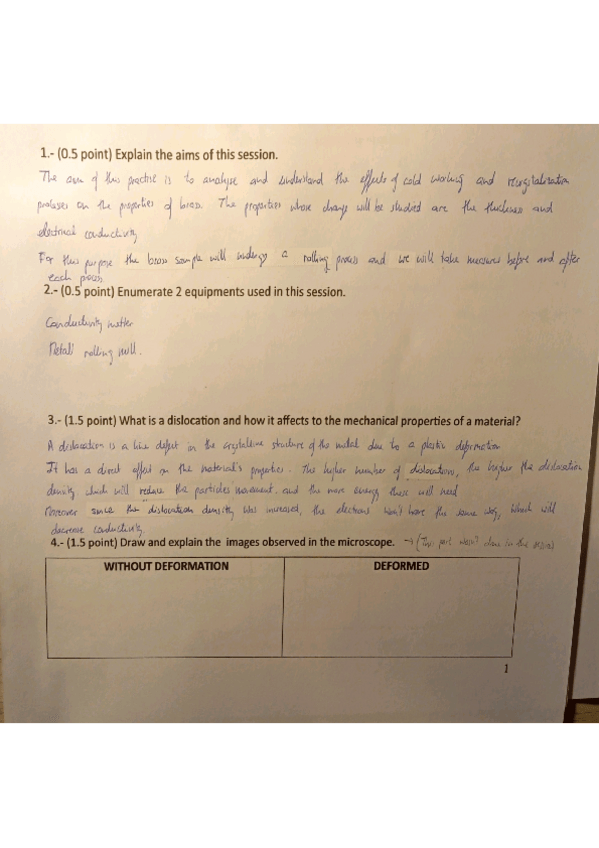 1.- (0.5 point) Explain the aims of this session.
The aim of this practise is to analyse and understand the effects of cold working and recrystalization
proceses on the properties of brass. The properties whose change will be studied are the thickness and
electrical conductivity
For this purpose the brass sample will undergo a rolling process and we will take measures before and after
each process.
2.- (0.5 point) Enumerate 2 equipments used in this session.
Conductivity metter
Metall rolling mill.
3.- (1.5 point) What is a dislocation and how it affects to the mechanical properties of a material?
A dislocation is a line defect in the crystalline structure of the metal due to a plastic deformation
It has a direct effect on the material's properties. The higher number of dislocations, the higher the dislocation
density which will reduce the particles movement and the more energy these will need
Moreover since the dislocation density was increased, the electrons won't have the same way, which will
decrease conductivity.
4.- (1.5 point) Draw and explain the images observed in the microscope. → (This part wasn't done in the
WITHOUT DEFORMATION
DEFORMED
1